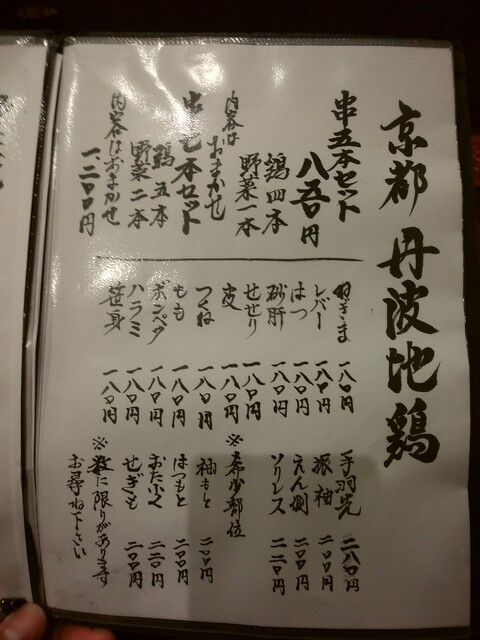 京都 丹波地鶏
串五本セット
八五〇円
鶏四本
野菜一本
内容はおまかせ
串七本セット
鶏五本
野菜二本
内容はおまかせ
一、二〇〇円
ねぎま 一八〇円
レバー 一八〇円
はつ 一八〇円
砂肝 一八〇円
せせり 一八〇円
皮 一八〇円
つくね 一八〇円
もも 一八〇円
ボンペタ 一八〇円
ハラミ 一八〇円
笹身 一八〇円
手羽先 二八〇円
振袖 二〇〇円
えん側 二〇〇円
ソリレス 二二〇円
※希少部位
袖もと 二〇〇円
はつもと 二〇〇円
おたふく 二二〇円
せぎも 二〇〇円
※数に限りがあります
お尋ね下さい